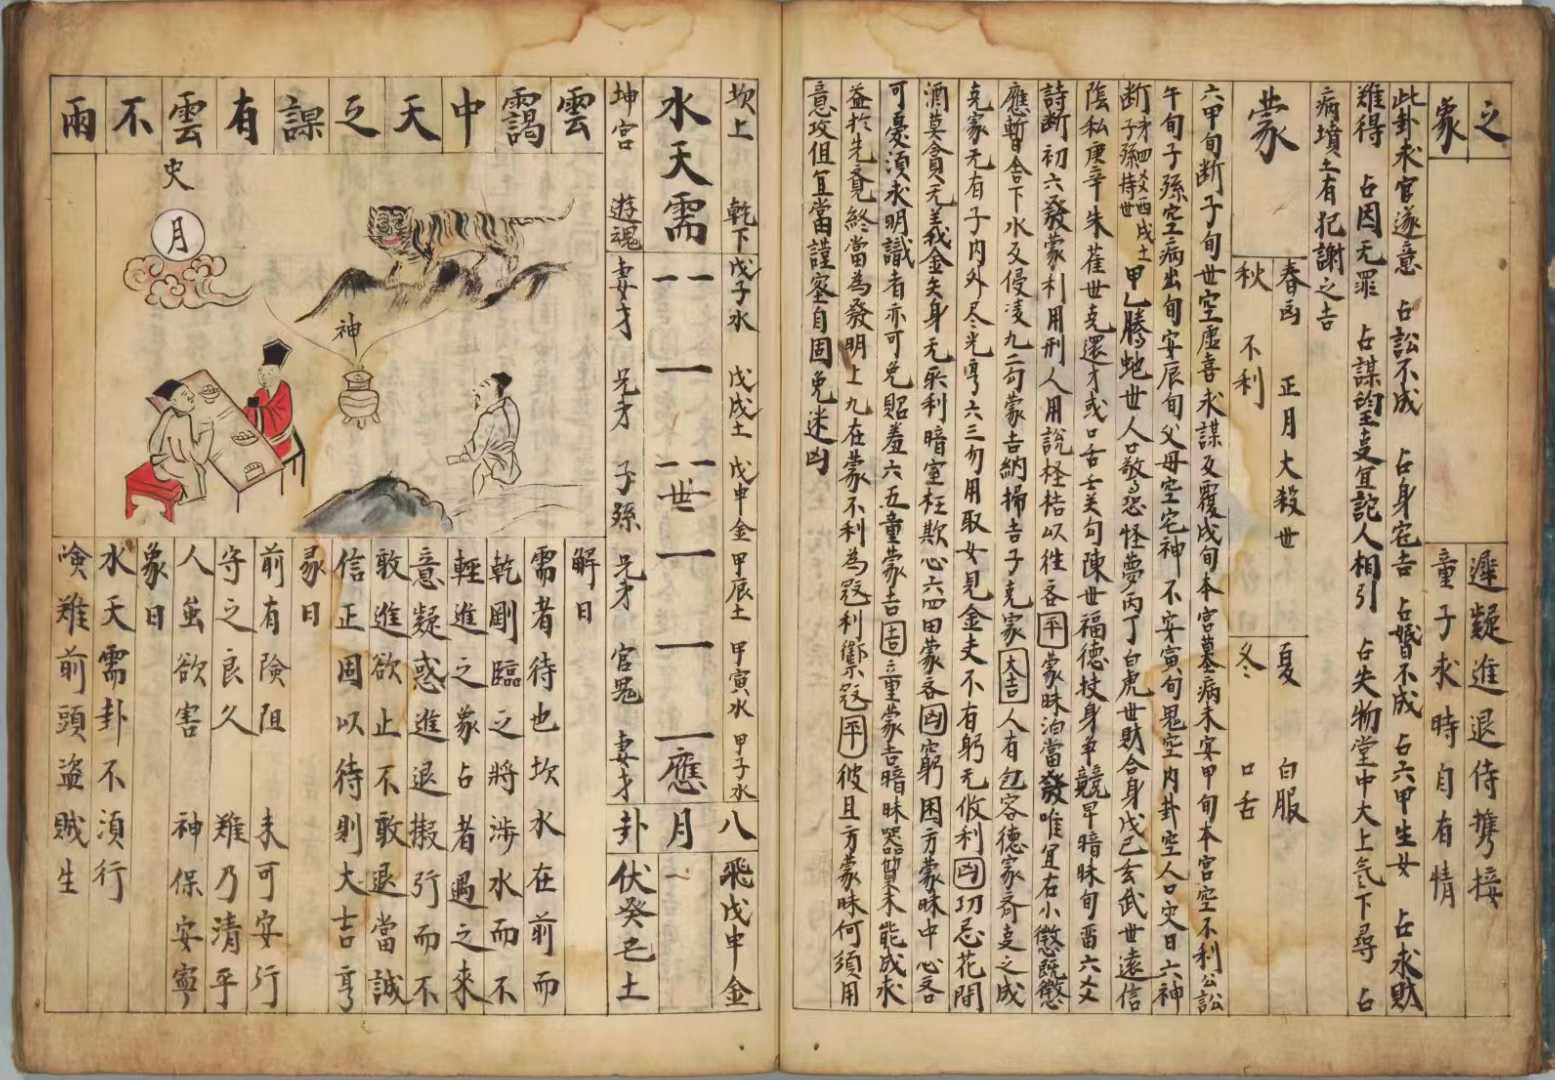 之
象
遲疑進退待携接
童子求時自有情
此卦求官遂意 占訟不成 占身宅吉 占婚不成 占六甲生女 占求財
難得 占囚无罪 占謀望事宜託人相引 占失物堂中大上氣下尋 占
病墳土有犯謝之吉
蒙
春凶 正月大殺世
秋 不利
夏 白服
冬 口舌
六甲旬断子旬世空虚喜求謀反覆戌旬本宮墓病未安甲旬本宮空不利公訟
午旬子孫空病出旬安辰旬父母空宅神不安寅旬鬼空内卦空人口灾日六神
断
子孫持世
甲乙騰蛇世人口驚恐怪夢丙丁白虎世財合身戊己玄武世遠信
陰私庚辛朱雀世克還才或口舌壬癸勾陳世福德扶身爭競早暗昧旬酉六爻
詩断初六發蒙利用刑人用說桎梏以往吝平蒙昧治當發唯宜右小懲既懲
應暫舍下水反侵凌九二勾蒙吉納婦吉子克家大吉人有包容德家齊吏之成
克家无有子内外尽光亨六三勿用取女見金夫不有躬无攸利凶切忌花間
酒莫貪无義金失身无所利暗室枉欺心六四困蒙吝凶窮困方蒙昧中心吝
可憂須求明識者亦可免貽羞六五童蒙吉吉童蒙吉暗昧器質未能成求
益於先覺終當為發明上九在蒙不利為寇利禦寇平彼且方蒙昧何須用
意攻但宜當謹密自固免迷凶
坎上 乾下 戊子水 戊戌土 戊申金 甲辰土 甲寅水 甲子水
水天需
世
應
坤宮 遊魂 妻才 兄才 子孫 兄才 官鬼 妻才
八月卦
飛戊申金
伏癸巳土
雲靄中天之謀有雲不雨
史
月
神
解曰
需者待也坎水在前而
乾剛臨之將涉水而不
輕進之象占者遇之來
意疑惑進退擬行而不
敢進欲止不敢退當誠
信正固以待則大吉亨
彖曰
前有險阻 未可安行
守之良久 難乃清平
人虽欲害 神保安寧
象曰
水天需卦不須行
嶮難前頭盜賊生